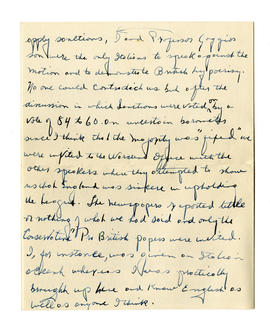 apply sanctions, I and Professor Foggis
son were the only Italians to speak against the
motion and to demonstrate British hypocrisy.
No one could contradict us but after the
discussion in which sanctions were voted by a
vote of 84 to 60. an uncertain
since I think that the majority was "fixed" we
were invited to the with the
other speakers when they attempted to show
us that England was sincere in upholding
the League. The newspapers reported little
or nothing of what we had said and only the
Conservative Pro British papers were invited.
I, for instance, was given an Italian
accent whereas I was practically
brought up here and know English as
well as anyone I think.